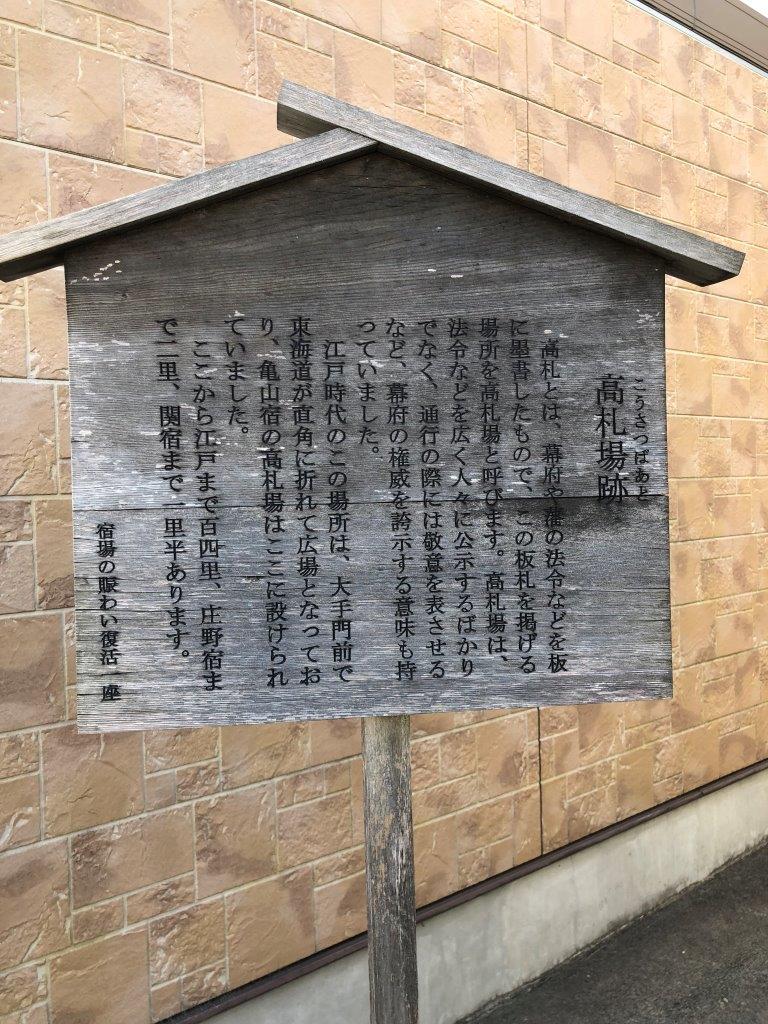 こうさつばあと
高札場跡
高札とは、幕府や藩の法令などを板
に墨書したもので、この板札を掲げる
場所を高札場と呼びます。高札場は、
法令などを広く人々に公示するばかり
でなく、通行の際には敬意を表させる
など、幕府の権威を誇示する意味も持
っていました。
江戸時代のこの場所は、大手門前で
東海道が直角に折れて広場となってお
り、亀山宿の高札場はここに設けられ
ていました。
ここから江戸まで百四里、庄野宿ま
で二里、関宿まで一里半あります。
宿場の賑わい復活一座